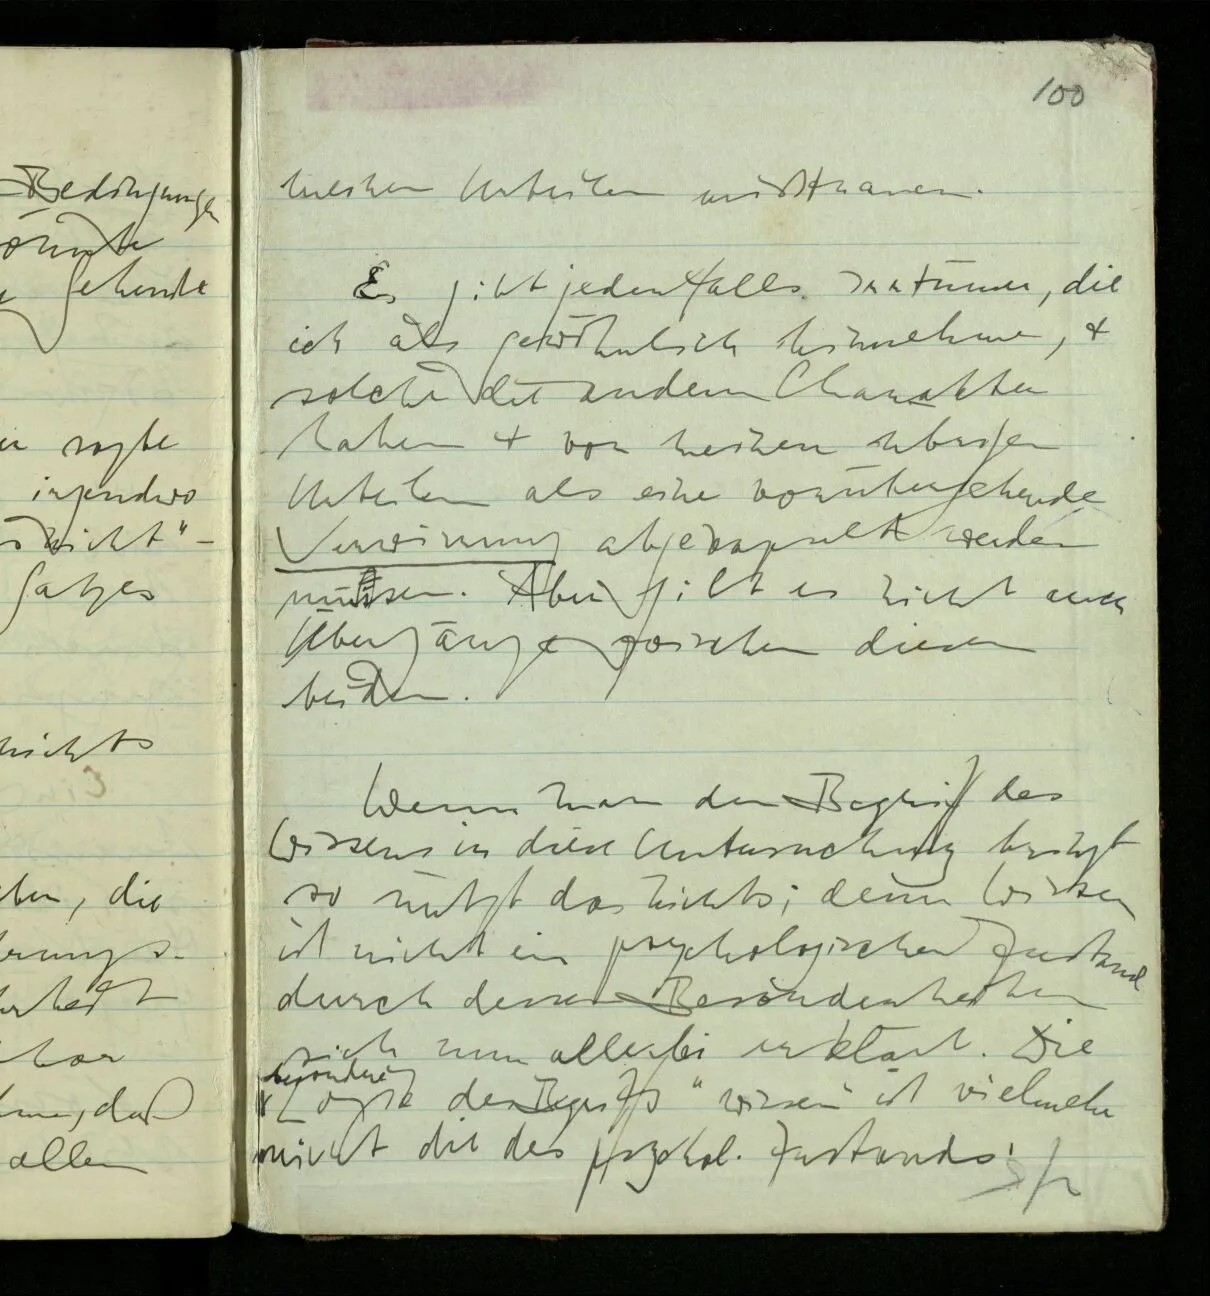 Bedingungen
könnte
gehende
er sagte
irgendwo
nicht" –
Satzes
nichts
ben, die
rungs-
hor
, daß
allen
100
meinen Urteilen mißtrauen.
Es gibt jedenfalls Irrtümer, die
ich als gewöhnlich hinnehme, &
solche die andern Charakter
haben & von meinen übrigen
Urteilen als eine vorübergehende
Verwirrung abgekapselt werden
müssen. Aber gibt es nicht auch
Übergänge zwischen diesen
beiden.
Wenn man den Begriff des
Wissens in diese Untersuchung bringt
so nützt das nichts; denn Wissen
ist nicht ein psychologischer Zustand
durch dessen Besonderheiten
sich nun allerlei erklärt. Die
besondere
Logik des Begriffs "wissen" ist vielmehr
nicht die des psychol. Zustands.